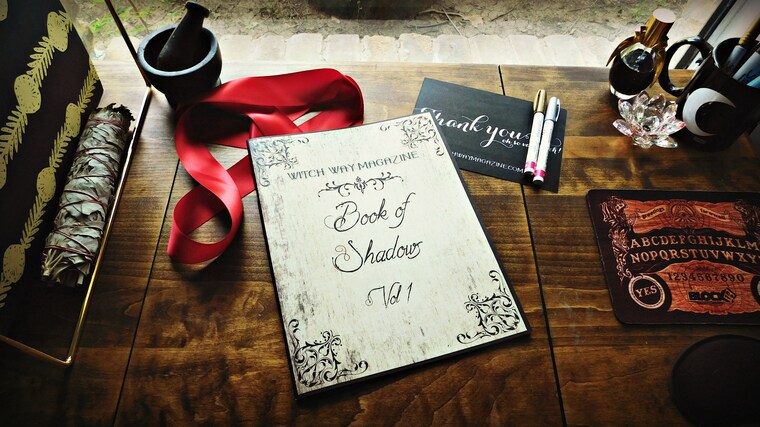 WITCH WAY MAGAZINE
Book of
Shadows
Vol 1
Thank you
WAYMAGAZINE.COM
ABCDEFGHIJKLM
NOPQRSTUVWXYZ
1234567890
YES
BLOCK